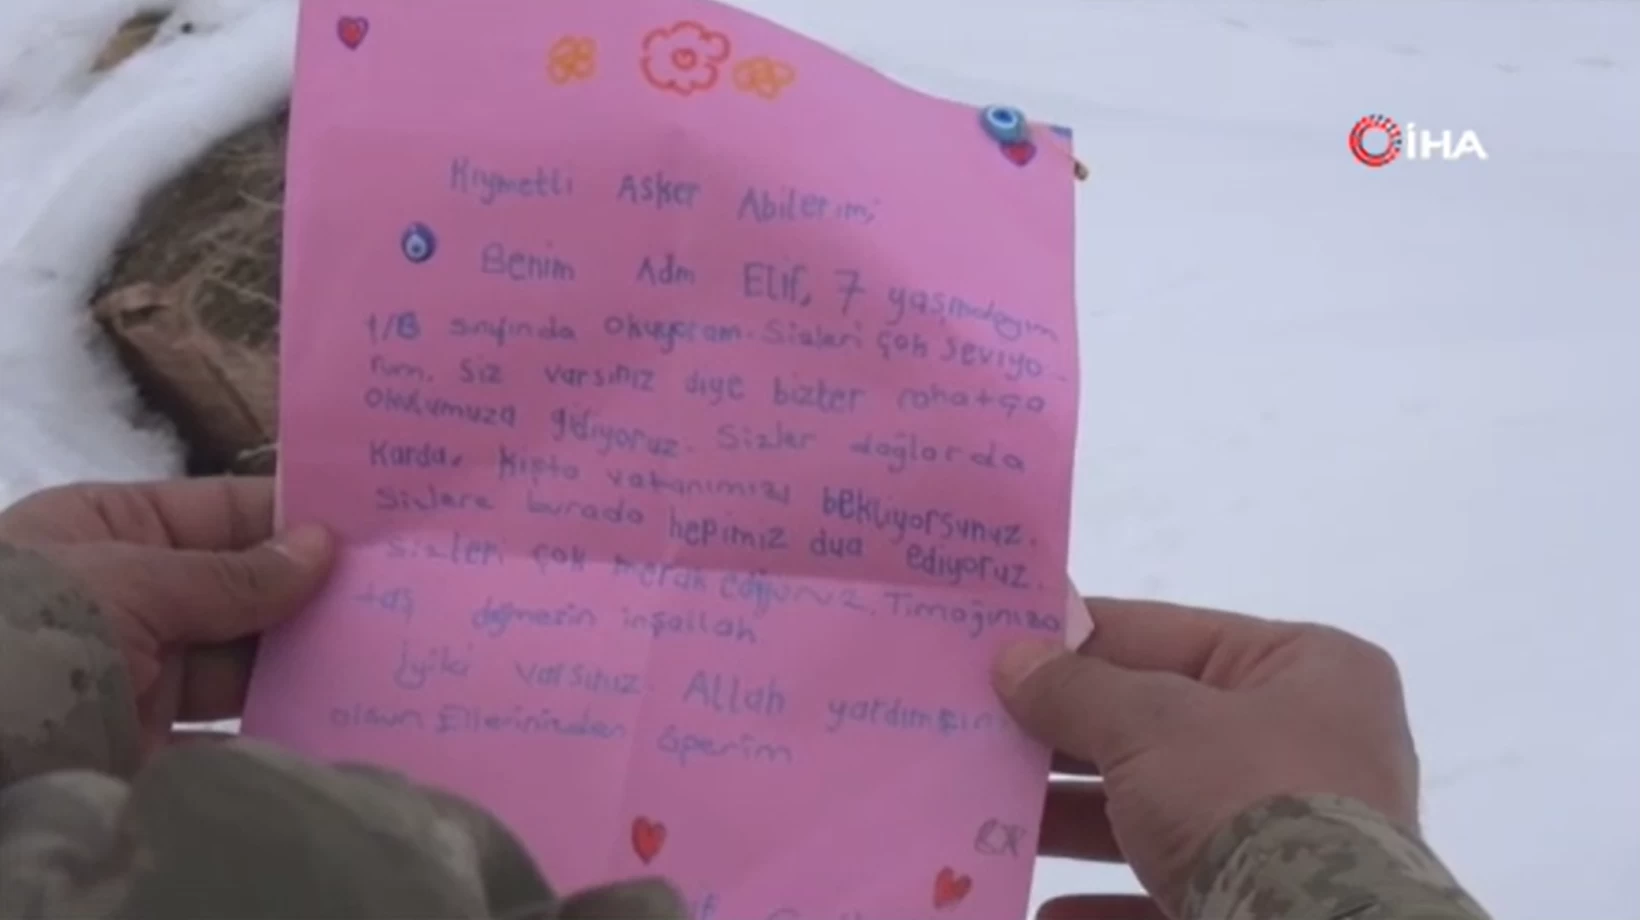 İHA
Kıymetli Asker Abilerim;
Benim Adım Elif, 7 yaşındayım
1/B sınıfında okuyoram. Sizleri çok seviyo-
rum. Siz varsınız diye bizler rahatça
okulumuza gidiyoruz. Sizler dağlarda
Karda, kışta vatanımızı bekliyorsunuz.
Sizlere burada hepimiz dua ediyoruz.
Sizleri çok merak ediyoruz. Tırnağınıza
taş değmesin inşallah
İyiki varsınız. Allah yardımcın
olsun Ellerinizden öperim